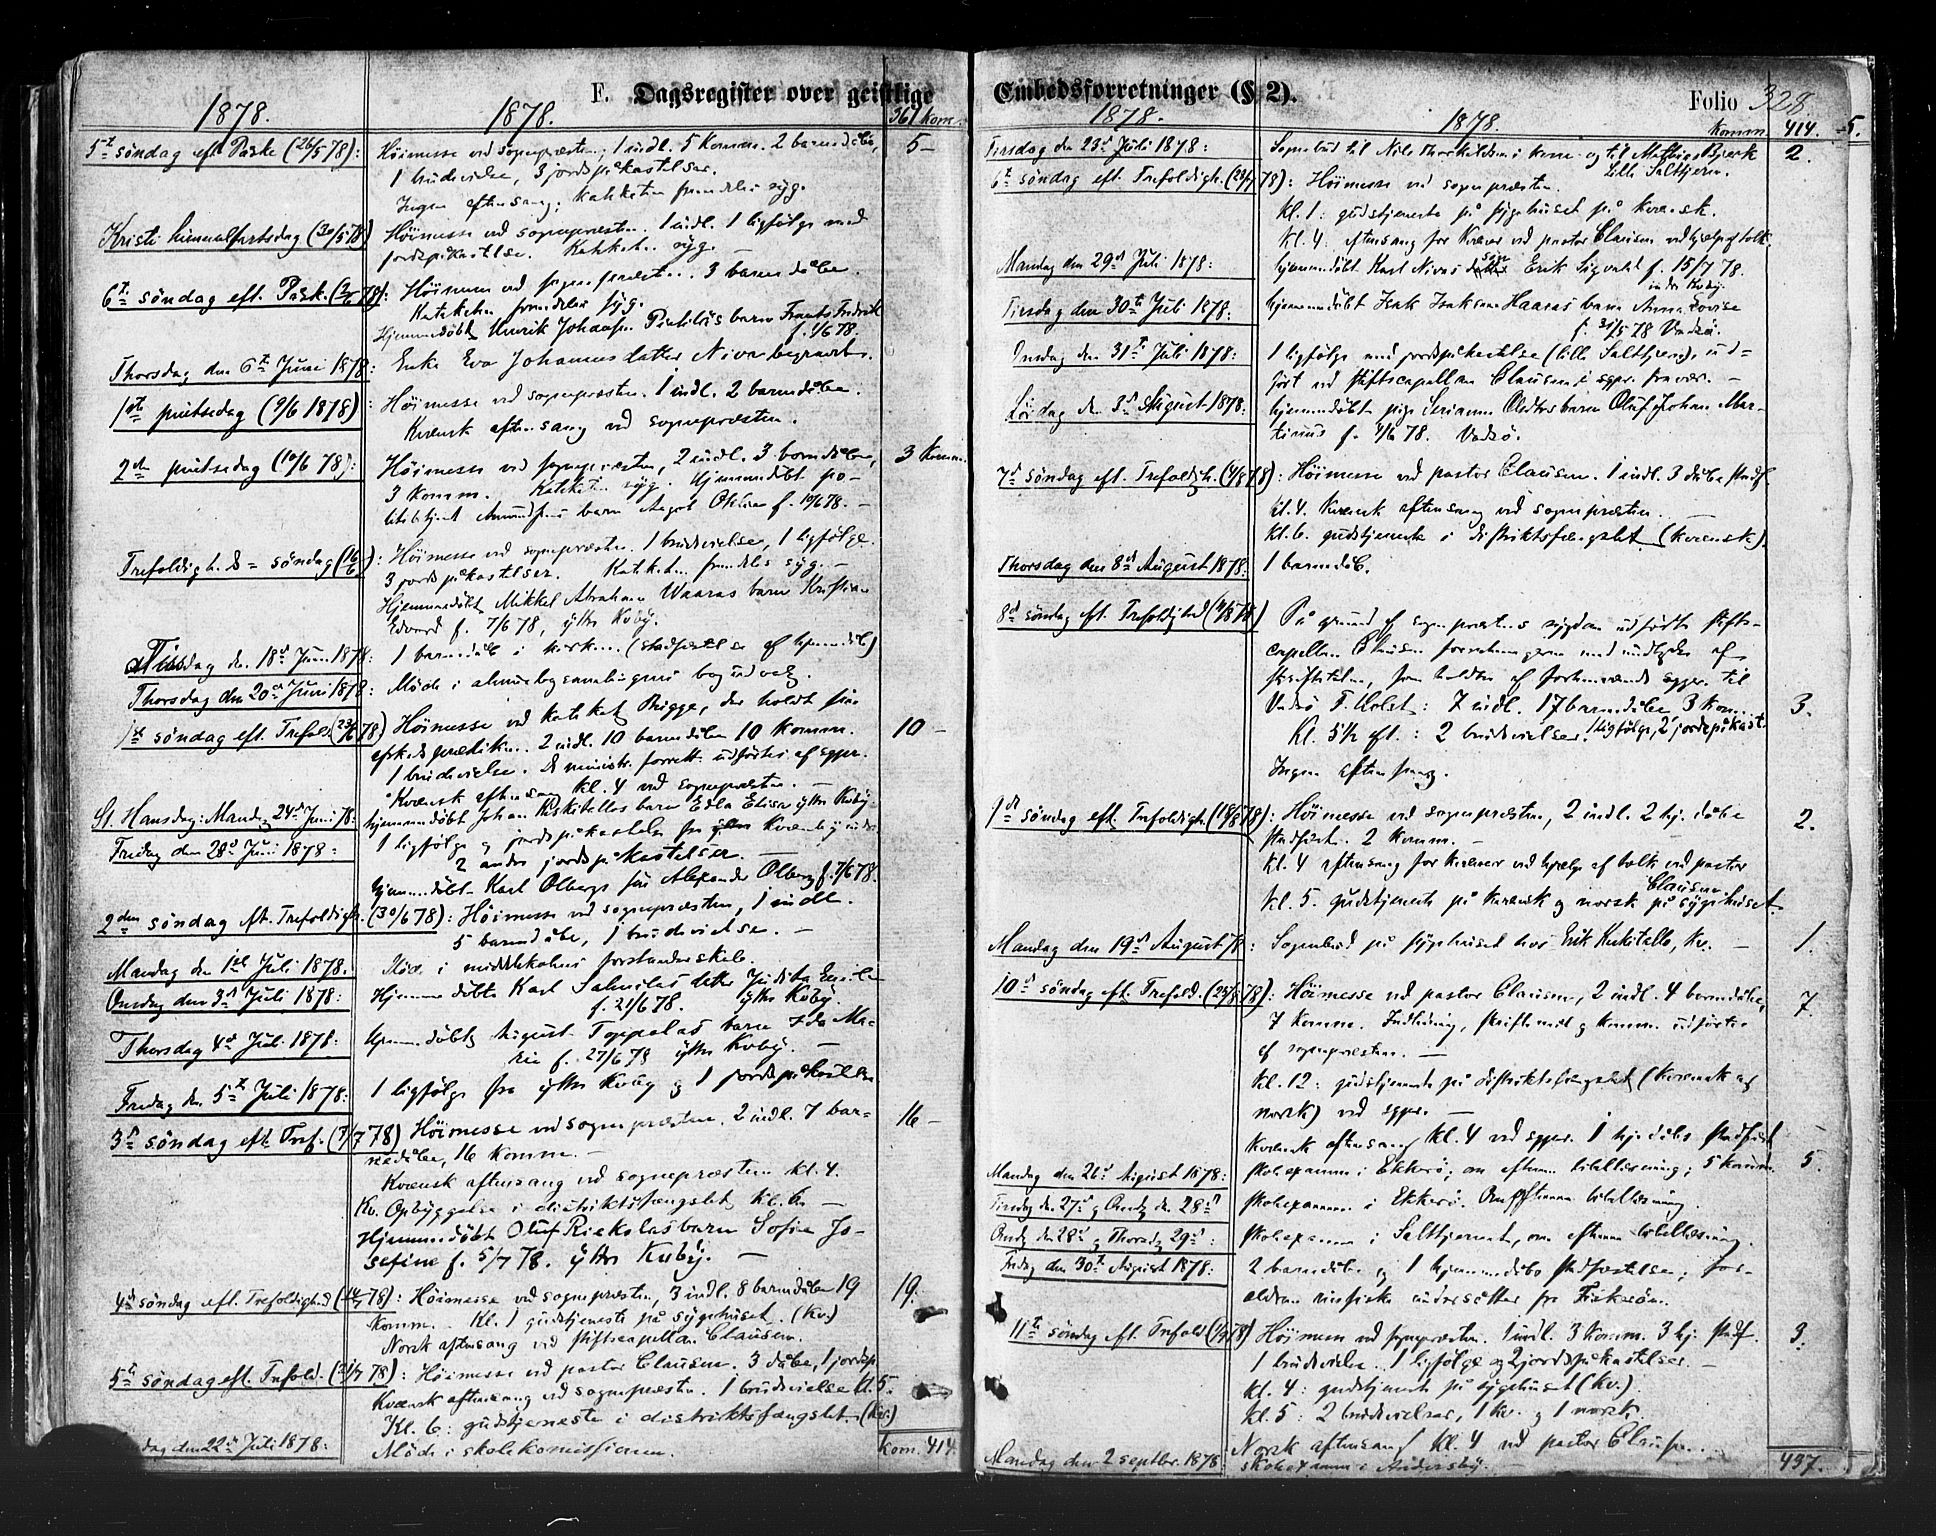 F. Dagsregister over geistlige
1878. 1878. 361 kom.
5te søndag eft. Påske (26/5 78): Høimesse ved sognepræsten, 1 indl. 5 komm. 2 barnedåbe, 5 –
1 brudevielse, 3 jordspåkastelser.
Ingen aftensang; katiketen fremdeles syg.
Kristi himmelfartsdag (30/5 78) Høimesse ved sognepræsten. 1 indl. 1 ligfølge med
jordspåkastelse. Katiketen syg. –
6te søndag eft. Påsk. (2/6 78): Høimesse ved sognepræsten. 3 barnedåbe.
Katiketen fremdeles syg.
Hjemmedøbt Henrik Johansen barn Frants Fredrik
f. 1/6 78.
Thorsdag den 6te Juni 1878: Enke Eva Johannesdatter Niva begravet.
1ste pintsedag (9/6 1878): Høimesse ved sognepræsten. 1 indl. 2 barnedåbe.
Kvænsk aftensang ved sognepræsten.
2den pintsedag (10/6 78): Høimesse ved sognepræsten, 2 indl. 3 barnedåbe, 3 Komm.
3 komm. Katiketen syg. Hjemmedøbt po-
litibetjent Amundsens barn Aagot f. 10/6 78. –
Trefoldigh.ds – søndag (16/6): Høimesse ved sognepræsten. 1 brudevielse, 1 ligfølge.
3 jordspåkastelser. Katiketen fremdeles syg. –
Hjemmedøbt Mikkel Abraham Waaras barn Kristian
Edvard f. 7/6 78, ytter Kvby.
Tirsdag den 18de Juni 1878: 1 barnedåb i kirken (stadfæstelse af hjemmedåb)
Thorsdag den 20de Juni 1878: Møde i almuebogsamlingens bogudvalg.
1ste søndag eft. Trefold. (23/6 78) Høimesse ved katiket Brigge, der holdt sin 10 –
afskedspræken. 2 indl. 10 barnedåbe 10 komm.
1 brudevielse. De ministr. forrett. udførtes af sgpr.
Kvænsk aftensang kl. 4 ved sognepræsten. –
St. Hansdag: Mandag 24de Juni 78: hjemmedøbt Johan barn Edla Elisa ytter Kvby.
Fredag den 28de Juni 1878: 1 ligfølge og jordspåkastelse fra Kvænby
2 andre jordspåkastelser. –
hjemmedøbt Karl Olbergs søn Alexander Olberg f. 7/6 78.
2den søndag eft. Trefoldigh. (30/6 78): Høimesse ved sognepræsten, 1 indl.
5 barnedåbe, 1 brudevielse. –
Mandag den 1ste Juli 1878. Møde i middelskolens forstanderskab.
Onsdag den 3de Juli 1878: Hjemmedøbte Karl datter Judita Emilie
f. 21/6 78. ytter Kvby.
Thorsdag 4de Juli 1878: Hjemmedøbt August Toppelas barn Ida Ma-
rie f. 27/6 78 ytter Kvby. –
Fredag den 5te Juli 1878: 1 ligfølge fra ytter Kvby og 1 jordspåkastelse
3de søndag eft. Tref. (7/7 78) Høimesse ved sognepræsten. 2 indl. 7 bar- 16 –
nedåbe, 16 komm. –
Kvænsk aftensang ved sognepræsten kl. 4.
Kv. Opbyggelse i distriktsfængslet kl. 6. –
Hjemmedøbt Oluf Riekolas barn Sofie Jo-
sefine f. 5/7 78. ytter Kvby. –
4de søndag eft. Trefoldighed (14/7 78): Høimesse ved sognepræsten, 3 indl. 8 barnedåbe 19 19.
komm. – Kl. 1 gudstjeneste på sygehuset. (Kv.)
Norsk aftensang ved stiftscapellan Clausen.
5te søndag eft. Trefold. (21/7 78): Høimesse ved pastor Clausen. 3 dåbe, 1 jordsp.
Kvænsk aftensang ved sognepræsten. 1 brudevielse kl. 5.
Kl. 6: gudstjeneste i distriktsfængslet (Kv.)
dag den 22de Juli 1878: Møde i skolekomissionen. kom. 414
Embedsforretninger (§ 2). Folio 328
1878. 1878. komm. 414. 5.
Tirsdag den 23de Juli 1878: Sognebud til Nils Thorkildsen i kom. og til Mathias 2.
Lille Salttjern.
6te søndag eft. Trefoldigh. (28/7 78): Høimesse ved sognepræsten.
kl. 1: gudstjeneste på sygehuset på kvænsk.
kl. 4: aftensang for kvæner ved pastor Clausen ved hjælp af tolk.
Mandag den 29de Juli 1878: hjemmedøbt Karl Nivas søn Erik Sigvald f. 15/7 78.
indre Kvby.
Tirsdag den 30te Juli 1878: hjemmedøbt Isak Isaksen Haaras barn Anna Lovise
f. 31/5 78 Vadsø.
Onsdag den 31te Juli 1878: 1 ligfølge med jordspåkastelse (lille Salttjern), ud-
ført ved stiftscapellan Clausen i sgpr. fravær. –
Lördag d. 3de August 1878: hjemmedøbt pige Serianne barn Oluf Johan Mar-
tinius f. 4/6 78. Vadsø.
7de søndag eft. Trefoldigh. (4/8 78): Høimesse ved pastor Clausen. 1 indl. 3 dåbe stadf.
kl. 4. Kvænsk aftensang ved sognepræsten. –
kl. 6. gudstjeneste i distriktsfængslet (kvænsk).
Thorsdag den 8de August 1878: 1 barnedåb.
8de søndag eft. Trefoldighed (11/8 78) På grund af sognepræstens sygdom udførte stifts-
capellan Clausen forretningerne med undtagelse af
skriftetalen, som holdtes af forhenværende sgpr. til
Vadsø F. Holst: 7 indl. 17 barnedåbe 3 kom. 3.
kl. 5½ eft.: 2 brudevielser. 1 ligfølge, 2 jordspåkast.
Ingen aftensang.
9de søndag eft. Trefoldigh. (18/8 78): Høimesse ved sognepræsten, 2 indl. 2 hj. dåbe 2.
stadfæst. 2 komm. –
kl. 4 aftensang for kvæner ved hjælp af tolk ved pastor
Clausen.
kl. 5. gudstjeneste på kvænsk og norsk på sygehuset.
Mandag den 19de August 78: Sognebud på sygehuset hos Erik Keskitallo, Kv. – 1.
10de søndag eft. Trefold. (25/8 78): Høimesse ved pastor Clausen, 2 indl. 4 barnedåbe, 7
7 komm. Indledning, skriftemål og komm. udførtes
af sognepræsten. –
kl. 12: gudstjeneste på distriktsfængslet (kvænsk og
norsk) ved sgpr. –
Kvænsk aftensang kl. 4 ved sgpr. 1 hj. dåbs stadfæst.
Mandag den 26de August 1878: skolexamen i Ekkerø, om aftenen bibellæsning; 5 komm. 5.
Tirsdag den 27de og Onsdg den 28de skolexamen i Ekkerø. Om aftenen bibellæsning.
Onsdg den 28de og Thorsdg 29de: skolexamen i Salttjernet, om aftenen bibellæsning.
Fredag den 30te August 1878: 2 barnedåbe og 1 hjemmedåbs stadfæstelse; for-
ældrene finske undersåtter fra Fiskerøen.
11te søndag eft. Trefold (1/9 78) Høimesse ved sognepræsten. 1 indl. 3 Komm. 3 hj. stadf. 3.
1 brudevielse. 1 ligfølge og 2 jordspåkastelser. –
kl. 4: gudstjeneste på sygehuset (kv.)
kl. 5: 2 brudevielser, 1 kv. og 1 norsk.
Norsk aftensang kl. 4 ved pastor Clausen.
Mandag den 2 septbr. 1878: skolexamen i Andersby. – 437.